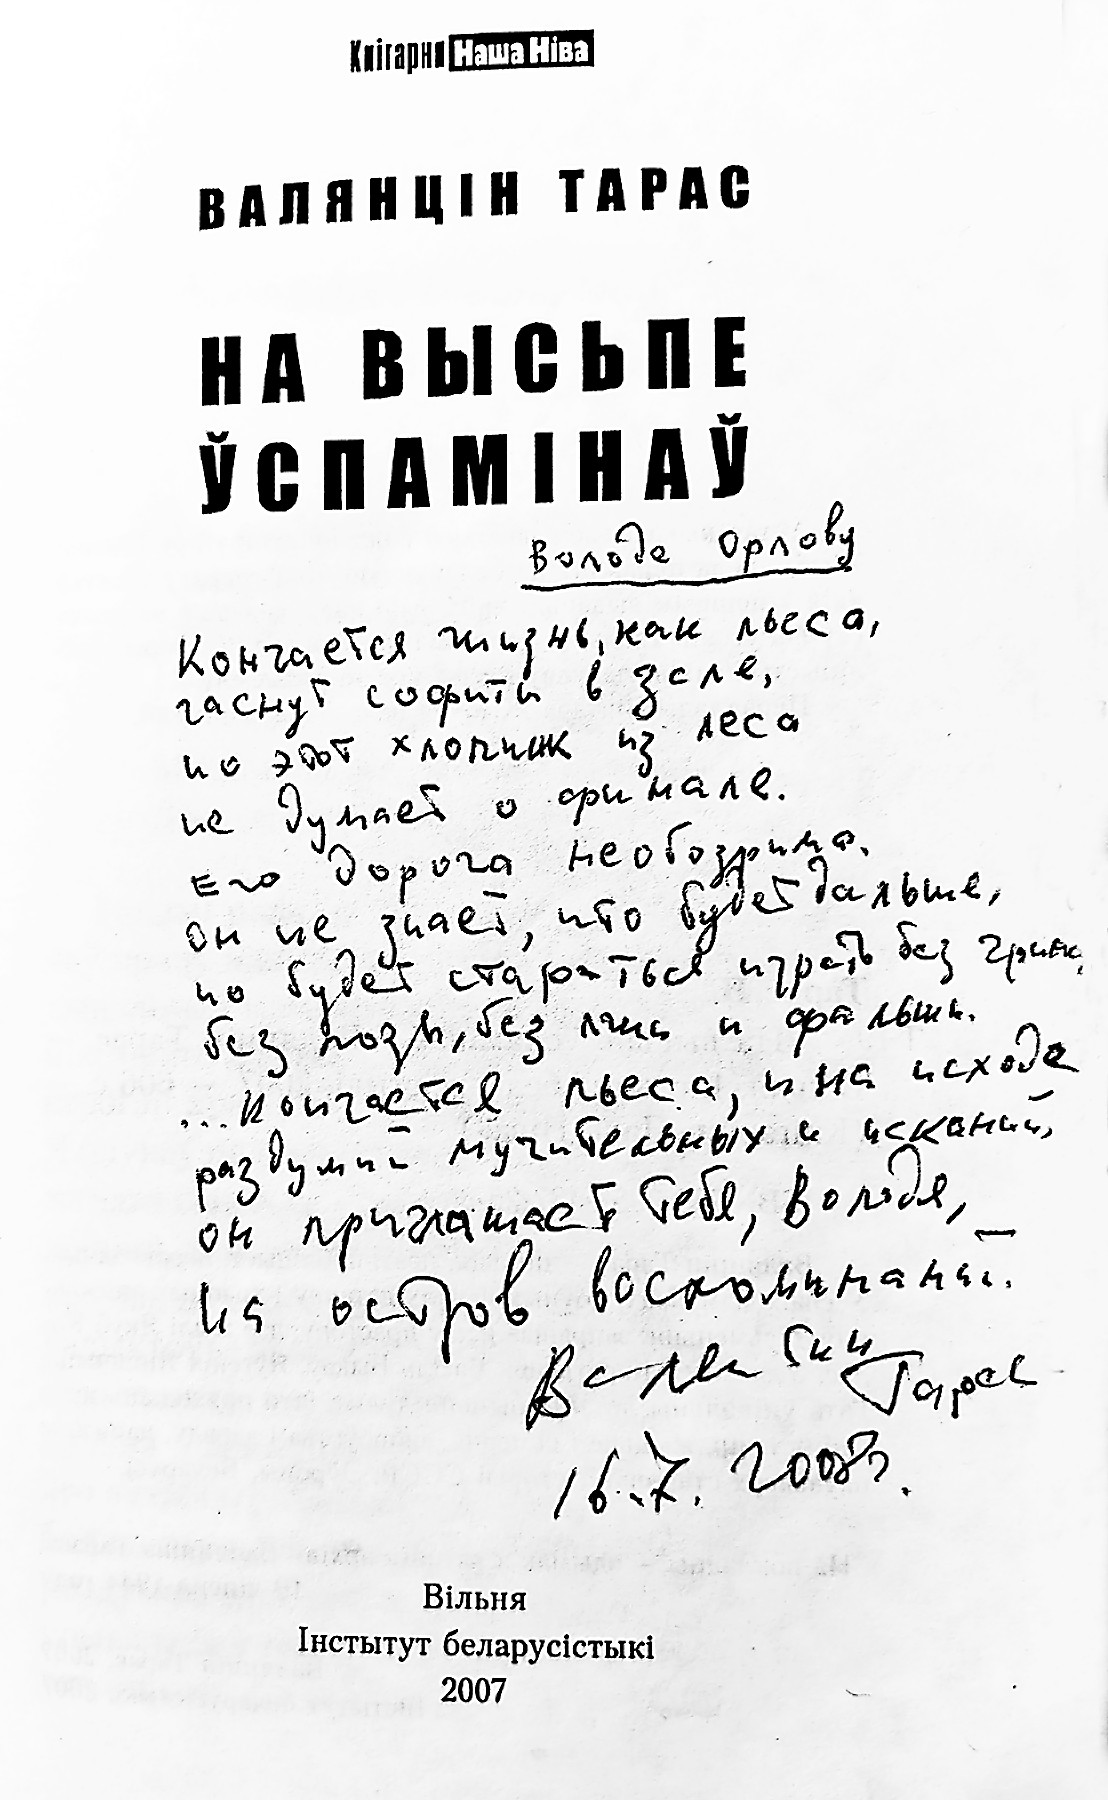 Кнігарня Наша Ніва
ВАЛЯНЦІН ТАРАС
НА ВЫСЬПЕ
ЎСПАМІНАЎ
Володе Орлову
Кончается жизнь, как пьеса,
гаснут софиты в зале,
но этот хлопчик из леса
не думает о финале.
Его дорога необозрима.
Он не знает, что будет дальше,
но будет стараться играть без грима,
без позы, без лжи и фальши.
...Кончается пьеса, и на исходе
раздумий мучительных и исканий,
он приглашает тебя, Володя,
на остров воспоминаний.
Валентин
Тарас
16.7.2008г.
Вільня
Інстытут беларусістыкі
2007